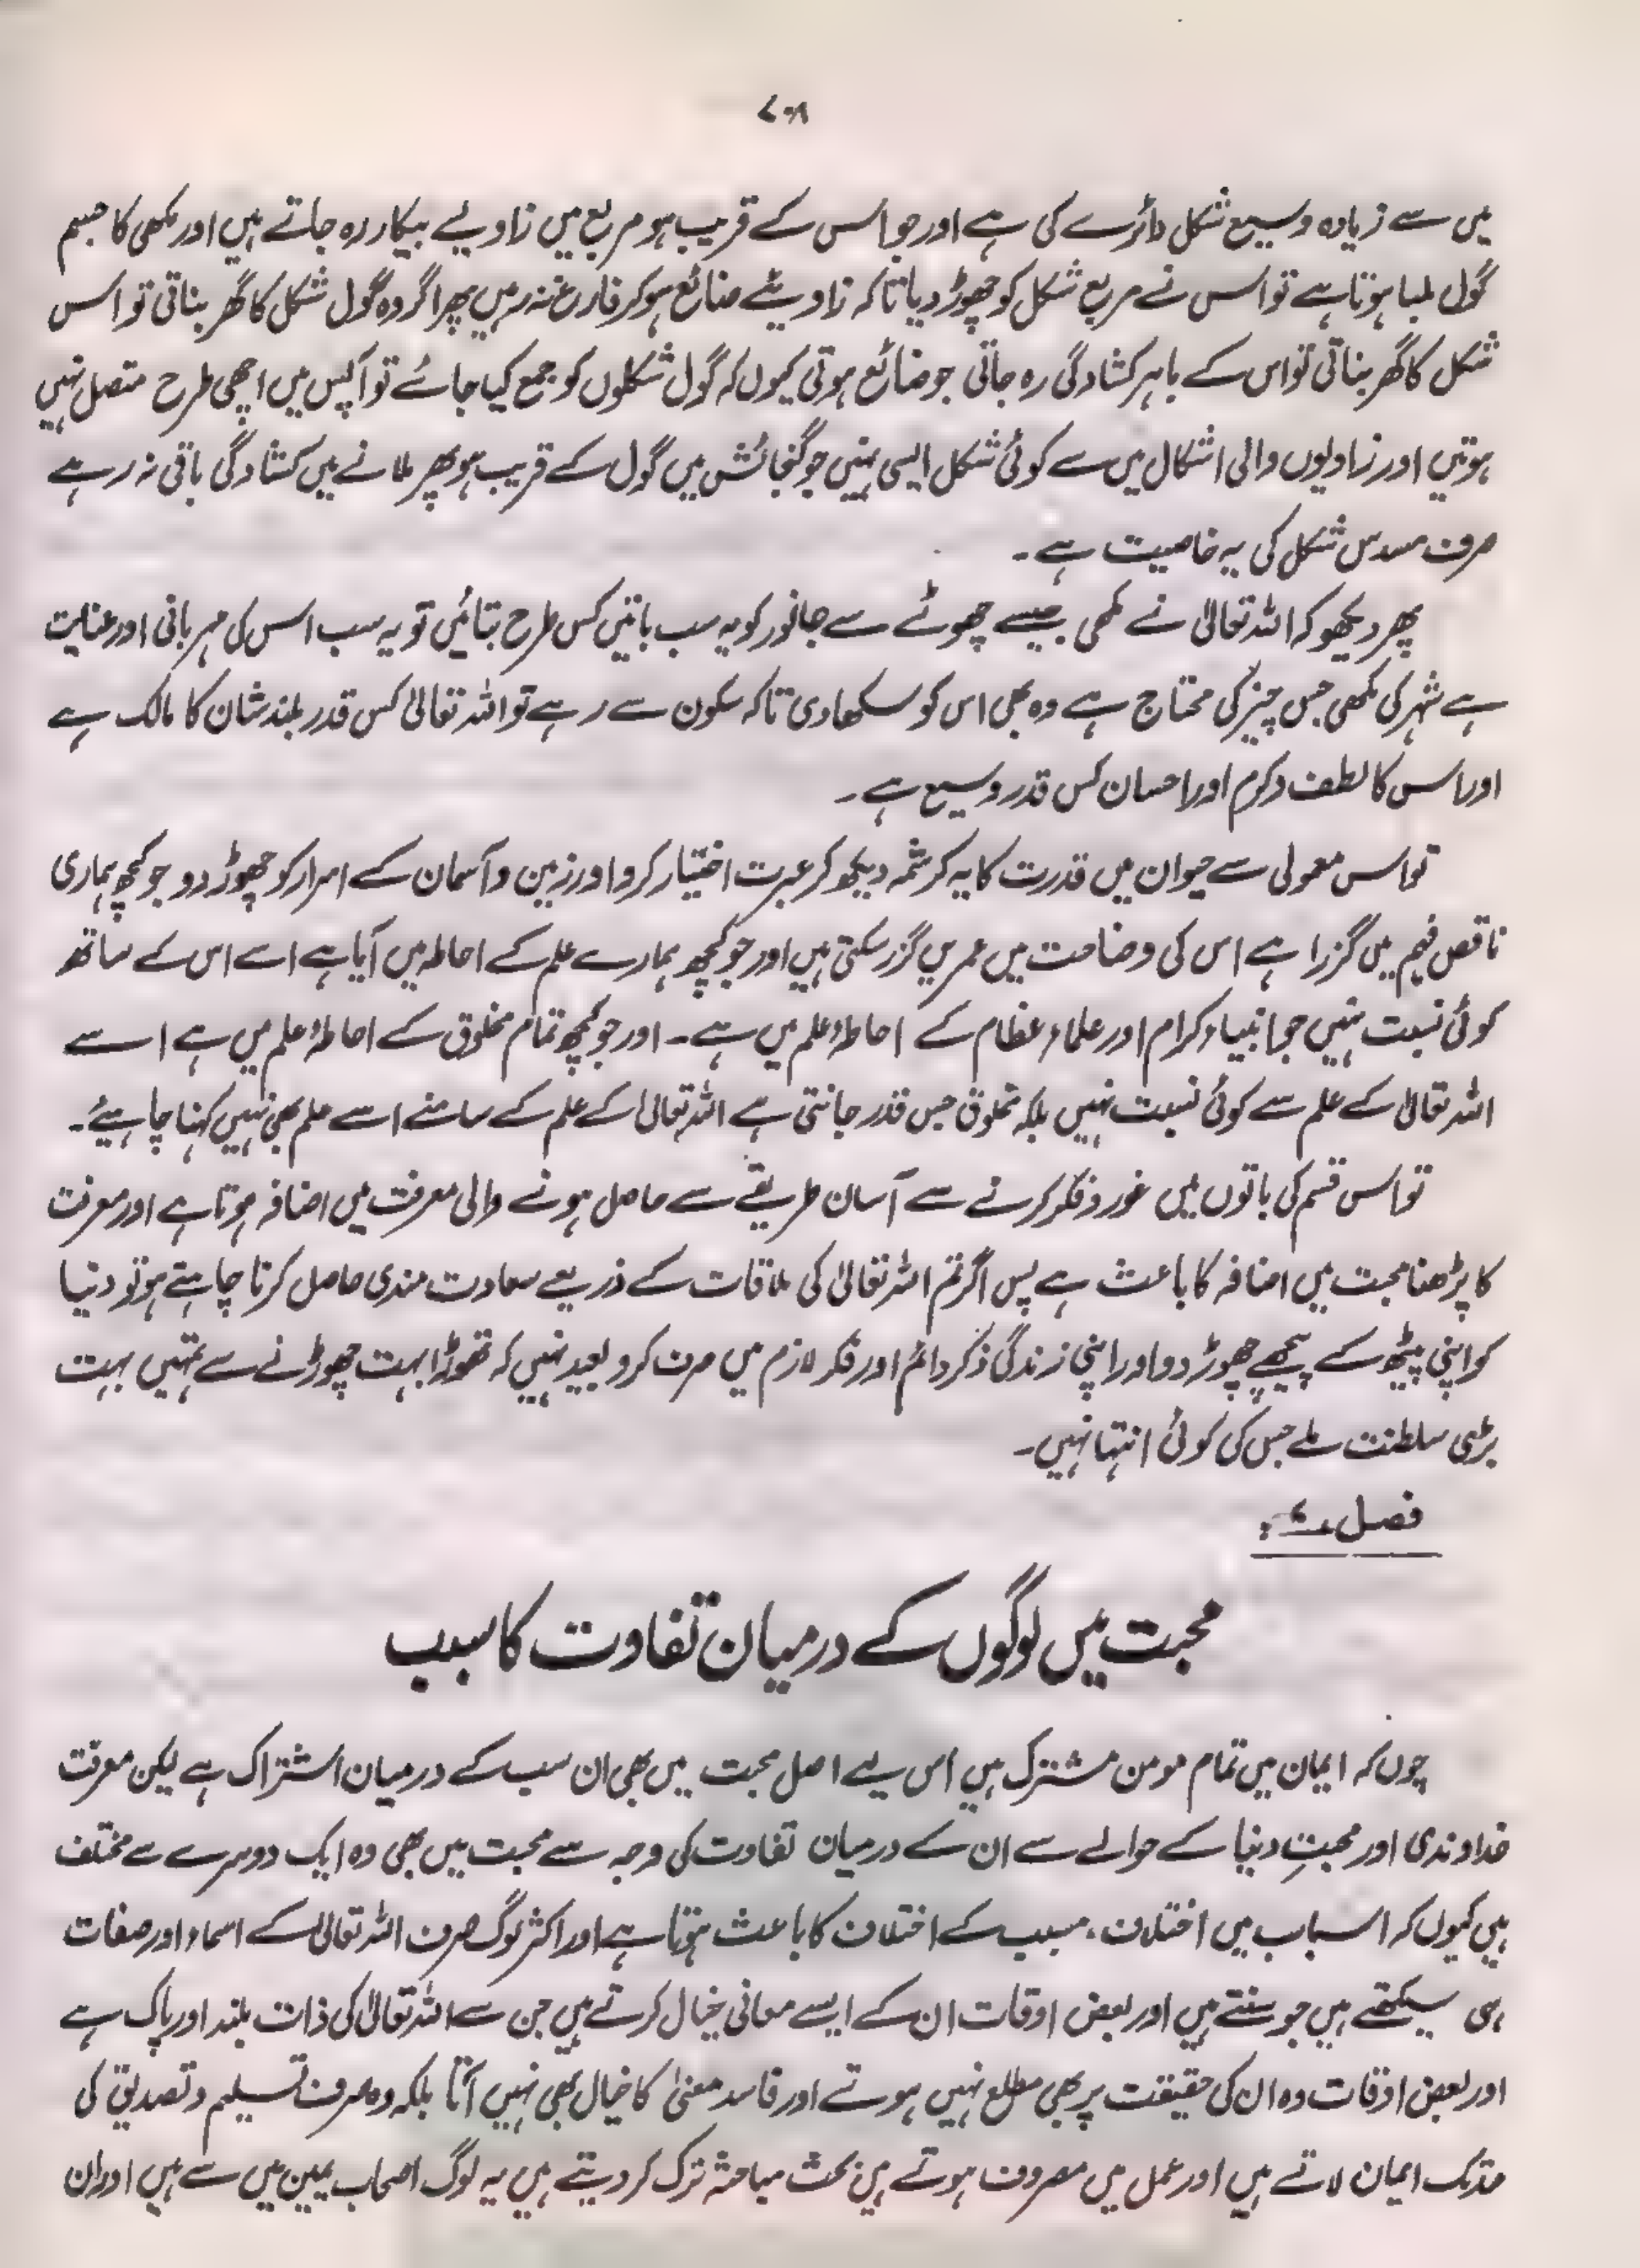 ۷۰۸
میں سے زیادہ وسیع شکل دائرے کی ہے اور جو اس کے قریب ہو مربع میں زاویے بیکار رہ جاتے ہیں اور مکھی کا جسم
گول لمبا ہوتا ہے تو اس نے مربع شکل کو چھوڑ دیا تاکہ زاویئے ضائع ہو کر فارغ نہ رہیں پھر اگر وہ گول شکل کا گھر بناتی تو اس
شکل کا گھر بناتی تو اس کے باہر کشادگی رہ جاتی جو ضائع ہوتی کیوں کہ گول شکلوں کو جمع کیا جائے تو آپس میں اچھی طرح متصل نہیں
ہوتیں اور زاویوں والی اشکال میں سے کوئی شکل ایسی نہیں جو گنجائش میں گول کے قریب ہو پھر ملانے میں کشادگی باقی نہ رہے
صرف مسدس شکل کی یہ خاصیت ہے۔
پھر دیکھو کہ اللہ تعالیٰ نے مکھی جیسے چھوٹے سے جانور کو یہ سب باتیں کس طرح بتائیں تو یہ سب اس کی مہربانی اور عنایت
ہے شہر کی مکھی جس چیز کی محتاج ہے وہ بھی اس کو سکھادی تاکہ سکون سے رہے تو اللہ تعالیٰ کس قدر بلند شان کا مالک ہے
اور اس کا لطف و کرم اور احسان کس قدر وسیع ہے۔
تو اس معمولی سے حیوان میں قدرت کا یہ کرشمہ دیکھ کر عبرت اختیار کرو اور زمین و آسمان کے اسرار کو چھوڑ دو جو کچھ ہماری
ناقص فہم میں گزرا ہے اس کی وضاحت میں عمریں گزر سکتی ہیں اور جو کچھ ہمارے علم کے احاطہ میں آیا ہے اسے اس کے ساتھ
کوئی نسبت نہیں جو انبیاء کرام اور علماء عظام کے احاطۂ علم میں ہے۔ اور جو کچھ تمام مخلوق کے احاطۂ علم میں ہے اسے
اللہ تعالیٰ کے علم سے کوئی نسبت نہیں بلکہ مخلوق جس قدر جانتی ہے اللہ تعالیٰ کے علم کے سامنے اسے علم بھی نہیں کہنا چاہیئے۔
تو اس قسم کی باتوں میں غور و فکر کرنے سے آسان طریقے سے حاصل ہونے والی معرفت میں اضافہ ہوتا ہے اور معرفت
کا بڑھنا محبت میں اضافہ کا باعث ہے پس اگر تم اللہ تعالیٰ کی ملاقات کے ذریعے سعادت مندی حاصل کرنا چاہتے ہو تو دنیا
کو اپنی پیٹھ کے پیچھے چھوڑ دو اور اپنی زندگی ذکر دائم اور فکر لازم میں صرف کرو بعید نہیں کہ تھوڑا بہت چھوڑنے سے تمہیں بہت
بڑی سلطنت ملے جس کی کوئی انتہا نہیں۔
فصل
محبت میں لوگوں کے درمیان تفاوت کا سبب
چوں کہ ایمان میں تمام مومن مشترک ہیں اس لیے اصل محبت میں بھی ان سب کے درمیان اشتراک ہے لیکن معرفت
خداوندی اور محبتِ دنیا کے حوالے سے ان کے درمیان تفاوت کی وجہ سے محبت میں بھی وہ ایک دوسرے سے مختلف
ہیں کیوں کہ اسباب میں اختلاف، مسبب کے اختلاف کا باعث ہوتا ہے اور اکثر لوگ صرف اللہ تعالیٰ کے اسماء اور صفات
ہی سیکھتے ہیں جو سنتے ہیں اور بعض اوقات ان کے ایسے معانی خیال کرتے ہیں جن سے اللہ تعالیٰ کی ذات بلند اور پاک ہے
اور بعض اوقات وہ ان کی حقیقت پر بھی مطلع نہیں ہوتے اور فاسد معنیٰ کا خیال بھی نہیں آتا بلکہ وہ صرف تسلیم و تصدیق کی
حد تک ایمان لاتے ہیں اور عمل میں مصروف ہوتے ہیں بحث مباحثہ ترک کر دیتے ہیں یہ لوگ اصحاب یمین میں سے ہیں اور ان